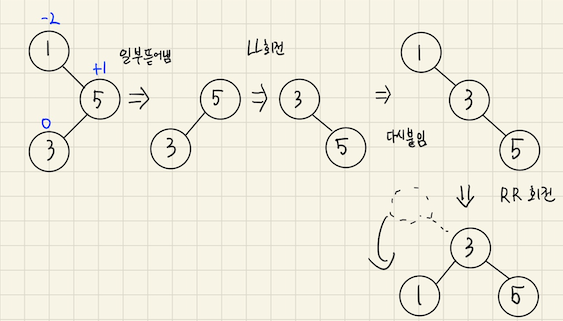 -2
1
+1
5
0
3
일부뜯어냄
⇒
5
3
LL회전
⇒
3
5
⇒
다시붙임
1
3
5
⇓ RR 회전
3
1
5